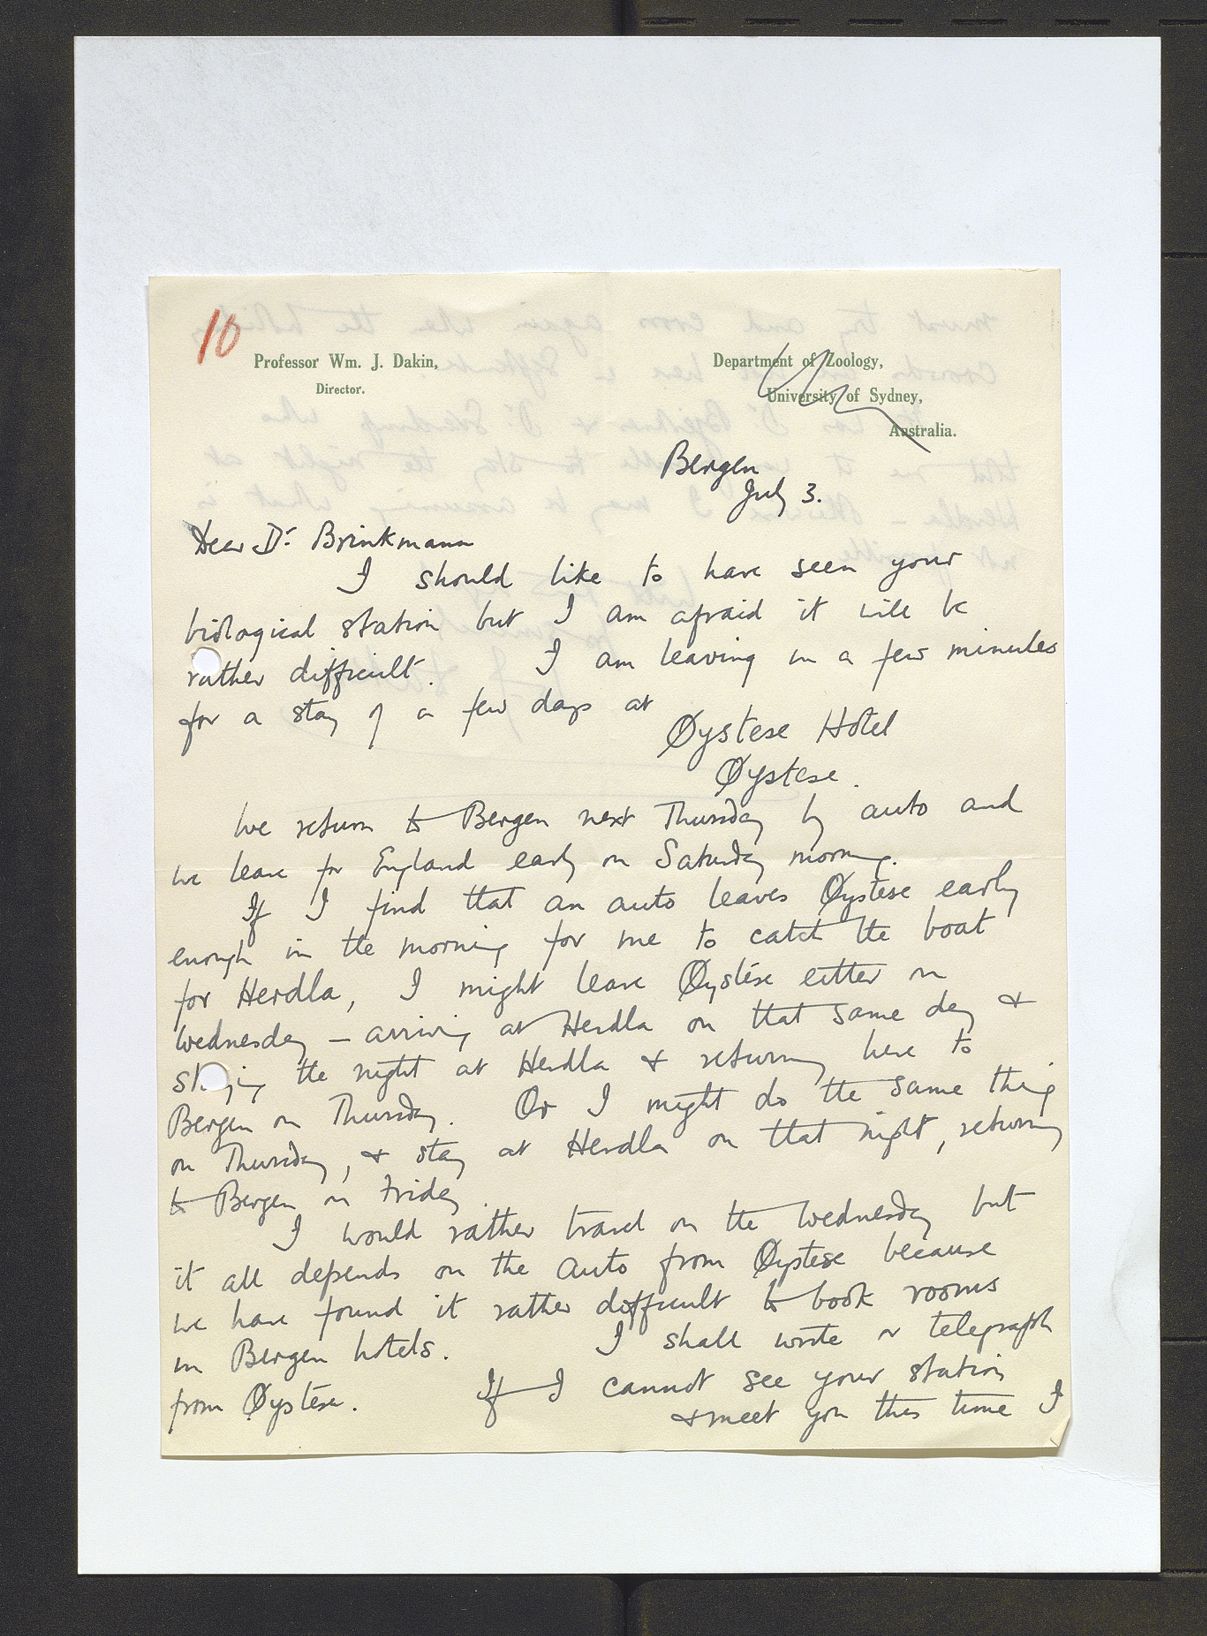 10
Professor Wm. J. Dakin,
Director.
Department of Zoology,
University of Sydney,
Australia.
Bergen
July 3.
Dear Dr Brinkmann
I should like to have seen your
biological station but I am afraid it will be
rather difficult. I am leaving in a few minutes
for a stay of a few days at
Øystese Hotel
Øystese.
We return to Bergen next Thursday by auto and
we leave for England early on Saturday morning.
If I find that an auto leaves Øystese early
enough in the morning for me to catch the boat
for Herdla, I might leave Øystese either on
Wednesday – arriving at Herdla on that same day &
staying the night at Herdla & returning here to
Bergen on Thursday. Or I might do the same thing
on Thursday, & stay at Herdla on that night, returning
to Bergen on Friday.
I would rather travel on the Wednesday but
it all depends on the auto from Øystese because
we have found it rather difficult to book rooms
in Bergen hotels. I shall write or telegraph
from Øystese. If I cannot see your station
& meet you this time I